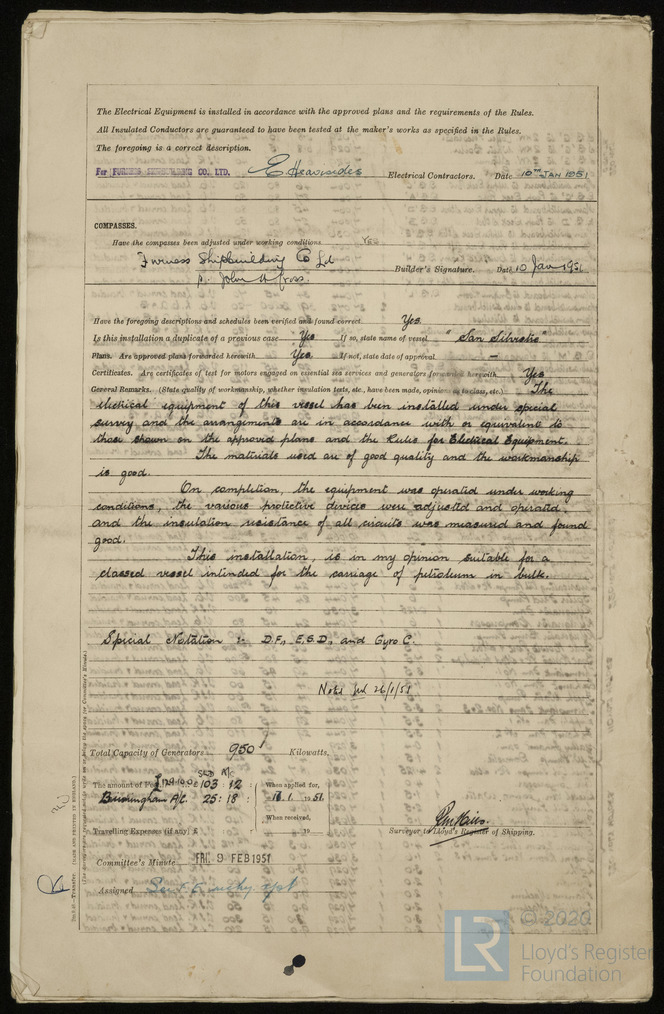 The Electrical Equipment is installed in accordance with the approved plans and the requirements of the Rules.
All Insulated Conductors are guaranteed to have been tested at the maker's works as specified in the Rules.
The foregoing is a correct description.
For FURNESS SHIPBUILDING CO., LTD. E Heavisides Electrical Contractors. Date 10TH JAN 1951
COMPASSES.
Have the compasses been adjusted under working conditions Yes
Furness Shipbuilding Co Ld
p. John H Cross. Builder's Signature. Date 10 Jan 1951
Have the foregoing descriptions and schedules been verified and found correct Yes
Is this installation a duplicate of a previous case Yes If so, state name of vessel "San Silvestre"
Plans. Are approved plans forwarded herewith Yes If not, state date of approval —
Certificates. Are certificates of test for motors engaged on essential sea services and generators forwarded herewith Yes
General Remarks. (State quality of workmanship, whether insulation tests, etc., have been made, opinion as to class, etc.) The
electrical equipment of this vessel has been installed under special
survey and the arrangements are in accordance with or equivalent to
those shown on the approved plans and the Rules for Electrical Equipment.
The materials used are of good quality and the workmanship
is good.
On completion, the equipment was operated under working
conditions, the various protective devices were adjusted and operated,
and the insulation resistance of all circuits was measured and found
good.
This installation, is in my opinion suitable for a
classed vessel intended for the carriage of petroleum in bulk.
Special Notation :- D.F., E.S.D., and Gyro C.
Noted 26/1/51
Total Capacity of Generators 950 Kilowatts.
The amount of Fee £129.10.0 £ 103 : 12 When applied for,
Birmingham A/C. 25 : 18 : 16.1. 1951.
When received,
Travelling Expenses (if any) £ 19
Surveyor to Lloyd's Register of Shipping.
Committee's Minute FRI. 9 FEB 1951
Assigned
© 2020
LR
Lloyd's Register
Foundation